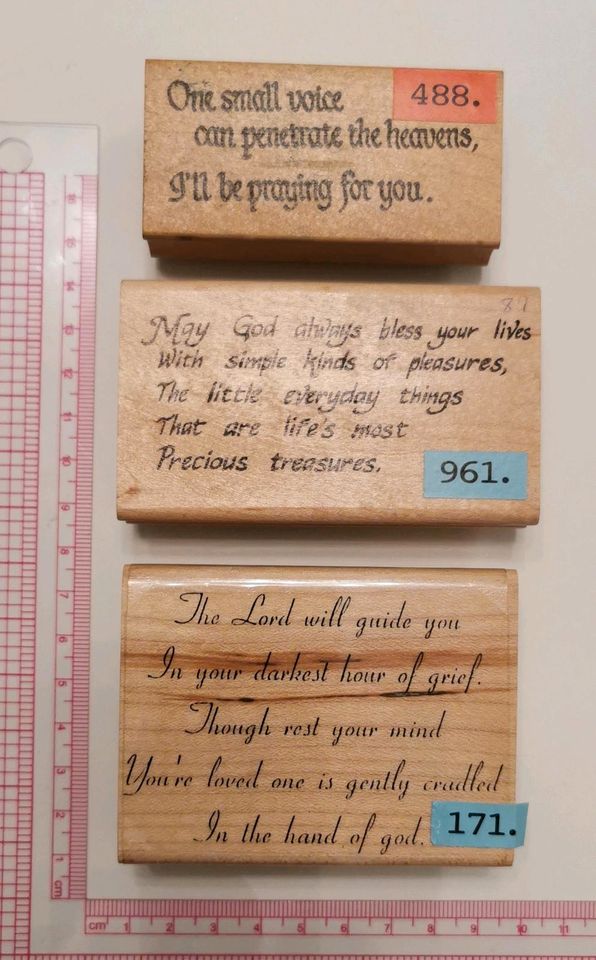 One small voice
488.
can penetrate the heavens,
I'll be praying for you.
87
May God always bless your lives
With simple kinds of pleasures,
The little everyday things
That are life's most
Precious treasures.
961.
The Lord will guide you
In your darkest hour of grief.
Though rest your mind
You're loved one is gently cradled
In the hand of god.
171.
16
15
14
13
12
11
10
9
8
7
6
5
4
3
2
1
cm
cm 1 2 3 4 5 6 7 8 9 10 11